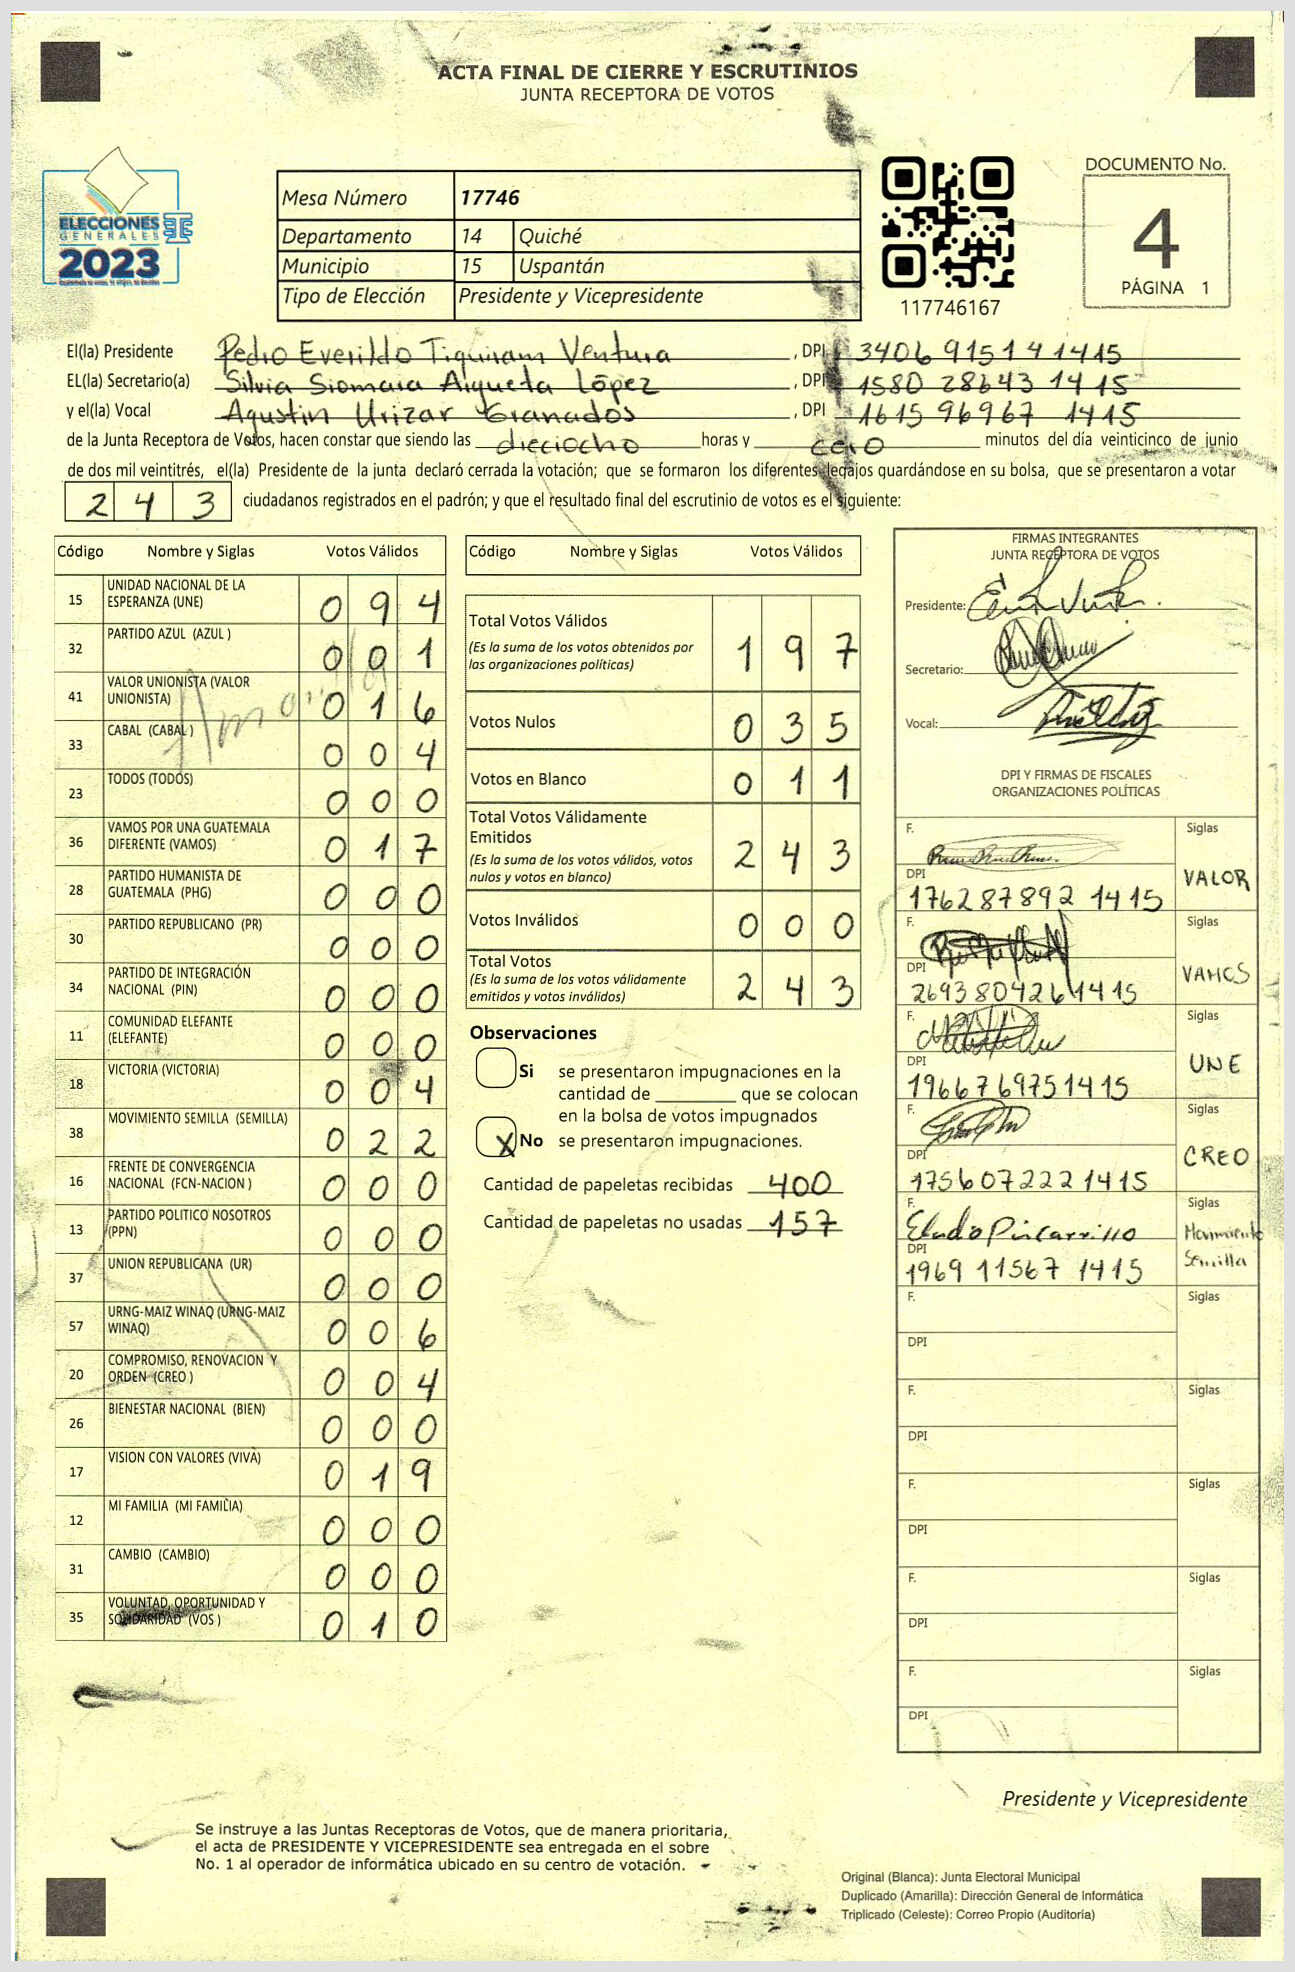 ACTA FINAL DE CIERRE Y ESCRUTINIOS
JUNTA RECEPTORA DE VOTOS
ELECCIONES
GENERALES
2023
Mesa Número 17746
Departamento 14 Quiché
Municipio 15 Uspantán
Tipo de Elección Presidente y Vicepresidente
117746167
DOCUMENTO No.
4
PÁGINA 1
El(la) Presidente Pedro Everildo Tiquiram Ventura , DPI 3406 91514 1415
EL(la) Secretario(a) Silvia Siomara Aigueta López , DPI 1580 28643 1415
y el(la) Vocal Agustin Urizar Granados , DPI 1615 96967 1415
de la Junta Receptora de Votos, hacen constar que siendo las dieciocho horas y cero minutos del día veinticinco de junio
de dos mil veintitrés, el(la) Presidente de la junta declaró cerrada la votación; que se formaron los diferentes legajos guardándose en su bolsa, que se presentaron a votar
243 ciudadanos registrados en el padrón; y que el resultado final del escrutinio de votos es el siguiente:
Código Nombre y Siglas Votos Válidos
15 UNIDAD NACIONAL DE LA ESPERANZA (UNE) 094
32 PARTIDO AZUL (AZUL ) 001
41 VALOR UNIONISTA (VALOR UNIONISTA) 016
33 CABAL (CABAL ) 004
23 TODOS (TODOS) 000
36 VAMOS POR UNA GUATEMALA DIFERENTE (VAMOS) 017
28 PARTIDO HUMANISTA DE GUATEMALA (PHG) 000
30 PARTIDO REPUBLICANO (PR) 000
34 PARTIDO DE INTEGRACIÓN NACIONAL (PIN) 000
11 COMUNIDAD ELEFANTE (ELEFANTE) 000
18 VICTORIA (VICTORIA) 004
38 MOVIMIENTO SEMILLA (SEMILLA) 022
16 FRENTE DE CONVERGENCIA NACIONAL (FCN-NACION ) 000
13 PARTIDO POLITICO NOSOTROS (PPN) 000
37 UNION REPUBLICANA (UR) 000
57 URNG-MAIZ WINAQ (URNG-MAIZ WINAQ) 006
20 COMPROMISO, RENOVACION Y ORDEN (CREO ) 004
26 BIENESTAR NACIONAL (BIEN) 000
17 VISION CON VALORES (VIVA) 019
12 MI FAMILIA (MI FAMILIA) 000
31 CAMBIO (CAMBIO) 000
35 VOLUNTAD, OPORTUNIDAD Y SOLIDARIDAD (VOS ) 010
Código Nombre y Siglas Votos Válidos
Total Votos Válidos 197
(Es la suma de los votos obtenidos por
las organizaciones políticas)
Votos Nulos 035
Votos en Blanco 011
Total Votos Válidamente
Emitidos 243
(Es la suma de los votos válidos, votos
nulos y votos en blanco)
Votos Inválidos 000
Total Votos 243
(Es la suma de los votos válidamente
emitidos y votos inválidos)
Observaciones
Si se presentaron impugnaciones en la
cantidad de ________ que se colocan
en la bolsa de votos impugnados
X No se presentaron impugnaciones.
Cantidad de papeletas recibidas 400
Cantidad de papeletas no usadas 157
FIRMAS INTEGRANTES
JUNTA RECEPTORA DE VOTOS
Presidente:
Secretario:
Vocal:
DPI Y FIRMAS DE FISCALES
ORGANIZACIONES POLÍTICAS
F. Siglas
DPI VALOR
176287892 1415
F. Siglas
DPI VAMOS
2693804261415
F. Siglas
DPI UNE
1966769751415
F. Siglas
DPI CREO
1756072221415
F. Siglas
DPI Movimiento
1969 11567 1415 Semilla
F. Siglas
DPI
F. Siglas
DPI
F. Siglas
DPI
F. Siglas
DPI
F. Siglas
DPI
Presidente y Vicepresidente
Se instruye a las Juntas Receptoras de Votos, que de manera prioritaria,
el acta de PRESIDENTE Y VICEPRESIDENTE sea entregada en el sobre
No. 1 al operador de informática ubicado en su centro de votación.
Original (Blanca): Junta Electoral Municipal
Duplicado (Amarilla): Dirección General de Informática
Triplicado (Celeste): Correo Propio (Auditoría)